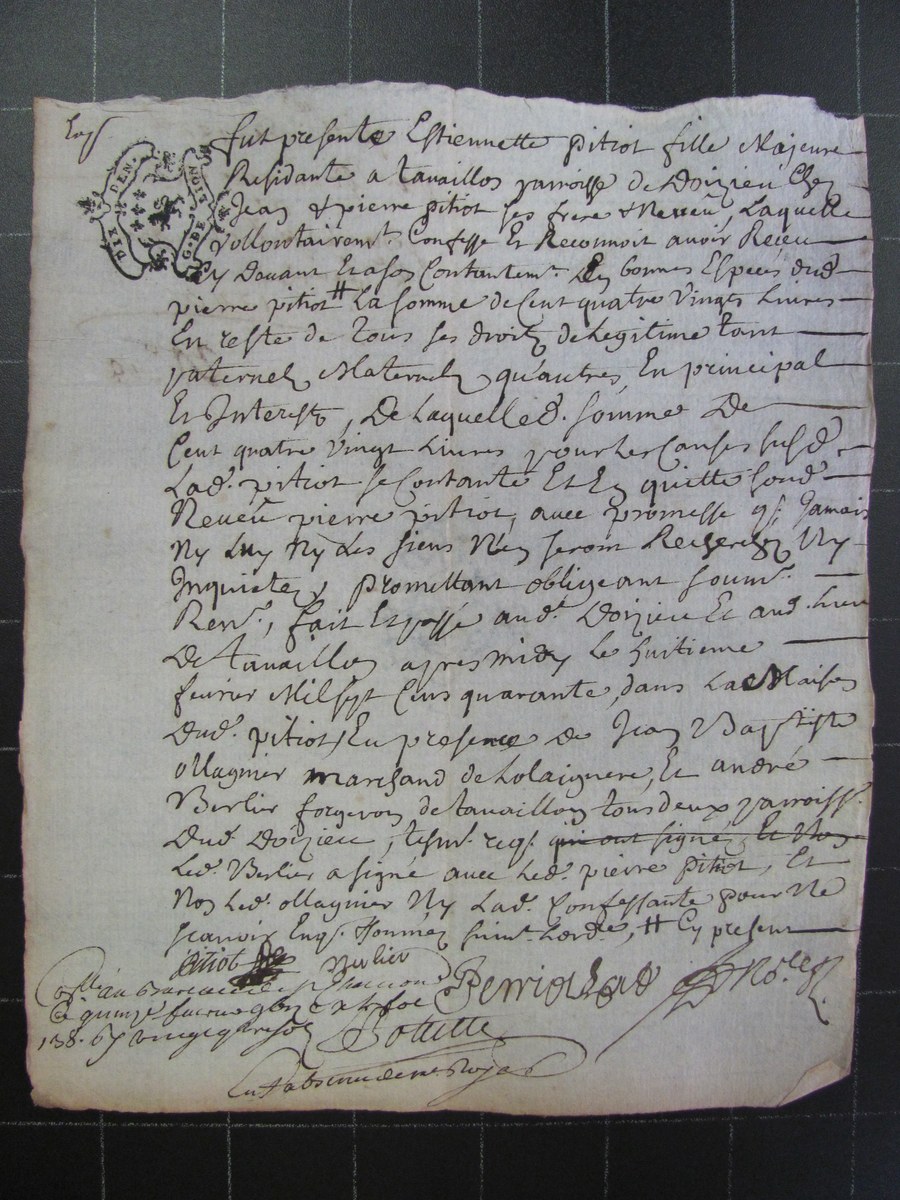 Exp.
DIX DEN.
G. DE LION
fut presente Estiennette pitiot fille Majeure
Residante a tavaillon parroisse de Doizieu Chez
Jean & pierre pitiot ses frere & Neveu, Laquelle
vollontairemt. Confesse Et Reconnoit avoir Receu
Cy Davant Et a son Contantemt. En bonnes Especes dud.
pierre pitiot # La somme de Cent quatre Vingts Livres
En reste de tous ses droitz de Legitime tant
paternelz Maternelz qu'autres, En principal
Et Interestz, De Laquelle d. somme De
Cent quatre Vingt Livres pour les Causes susd.
Lad. pitiot se Contante Et En quitte sond.
Neveu pierre pitiot, avec promesse q. Jamais
Ny Luy Ny Les siens N'en seront Recherchez Ny
Inquietez, promettant obligeant soumt.
Rent., fait Et passé aud. Doizieu Et aud. Lieu
De tavaillon apres midy Le huitieme
fevrier Mil sept Cens quarante, dans La Maison
Dud. pitiot, En presence de Jean Baptiste
ollagnier marchand de Lolaignere, Et andré
Berlier forgeron de tavaillon tous deux parroisse
Dud. Doizieu, tesmt. req. qui ont signé, Et Non
Led. Berlier a signé avec Led. pierre pitiot, Et
Non Led. ollagnier Ny Lad. Confessante pour Ne
scavoir Enq. sommez suivt. Lord.e, # Cy present
pitiot Berlier
quinze
138.